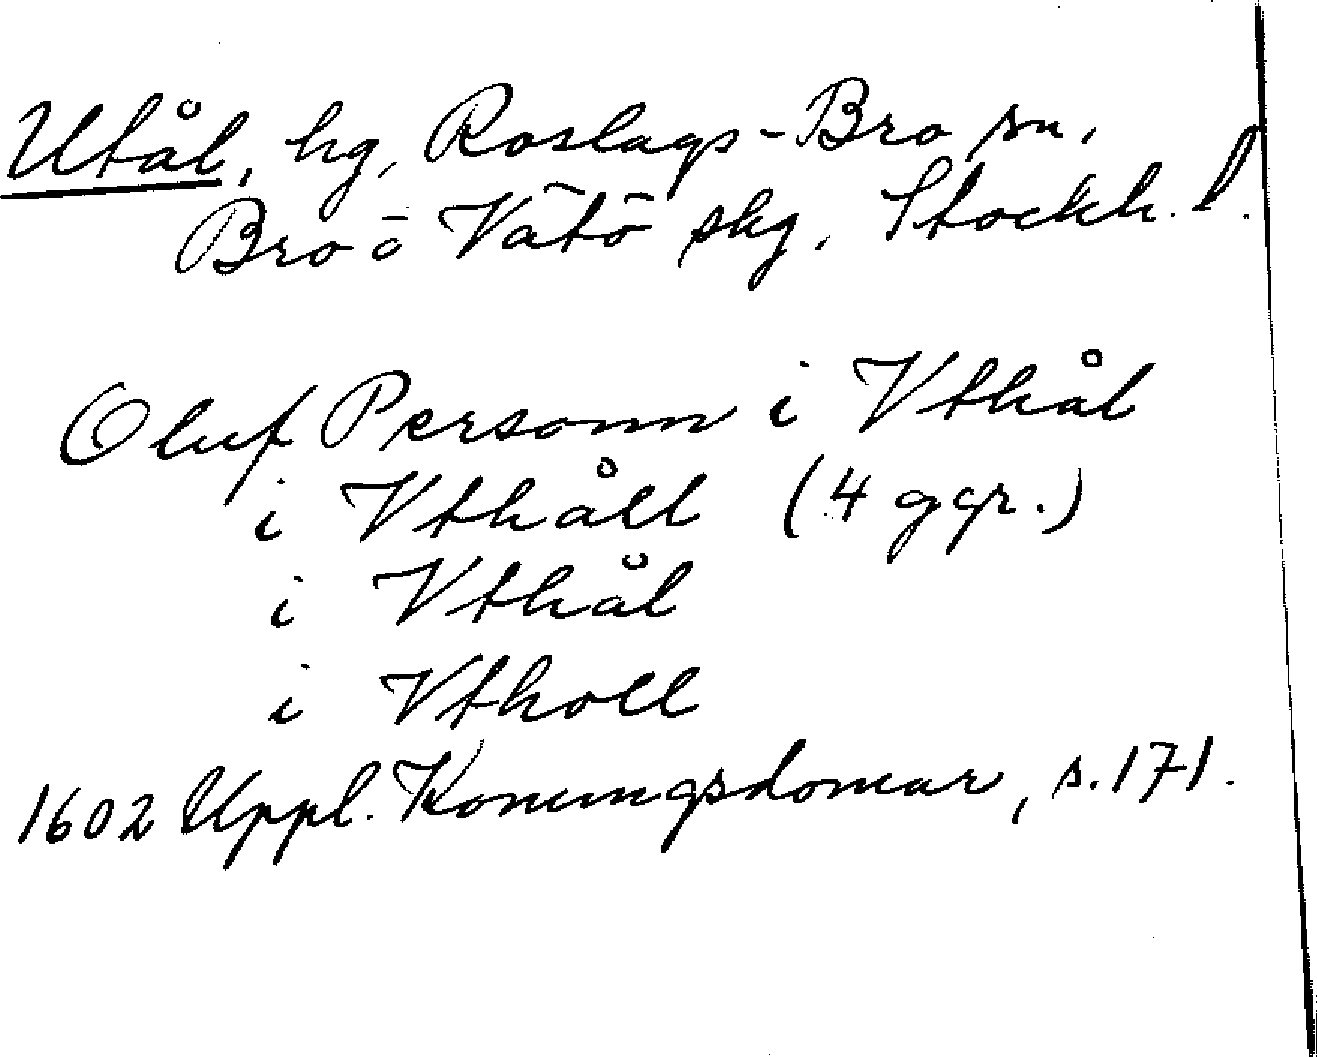 Utål, hg, Roslags-Bro sn,
Bro ō Vätö skg, Stockh. l.
Oluf Personn i Vthål
i Vthåll (4 ggr.)
i Vthål
i Vtholl
1602 Uppl. Konungsdomar, s. 171.